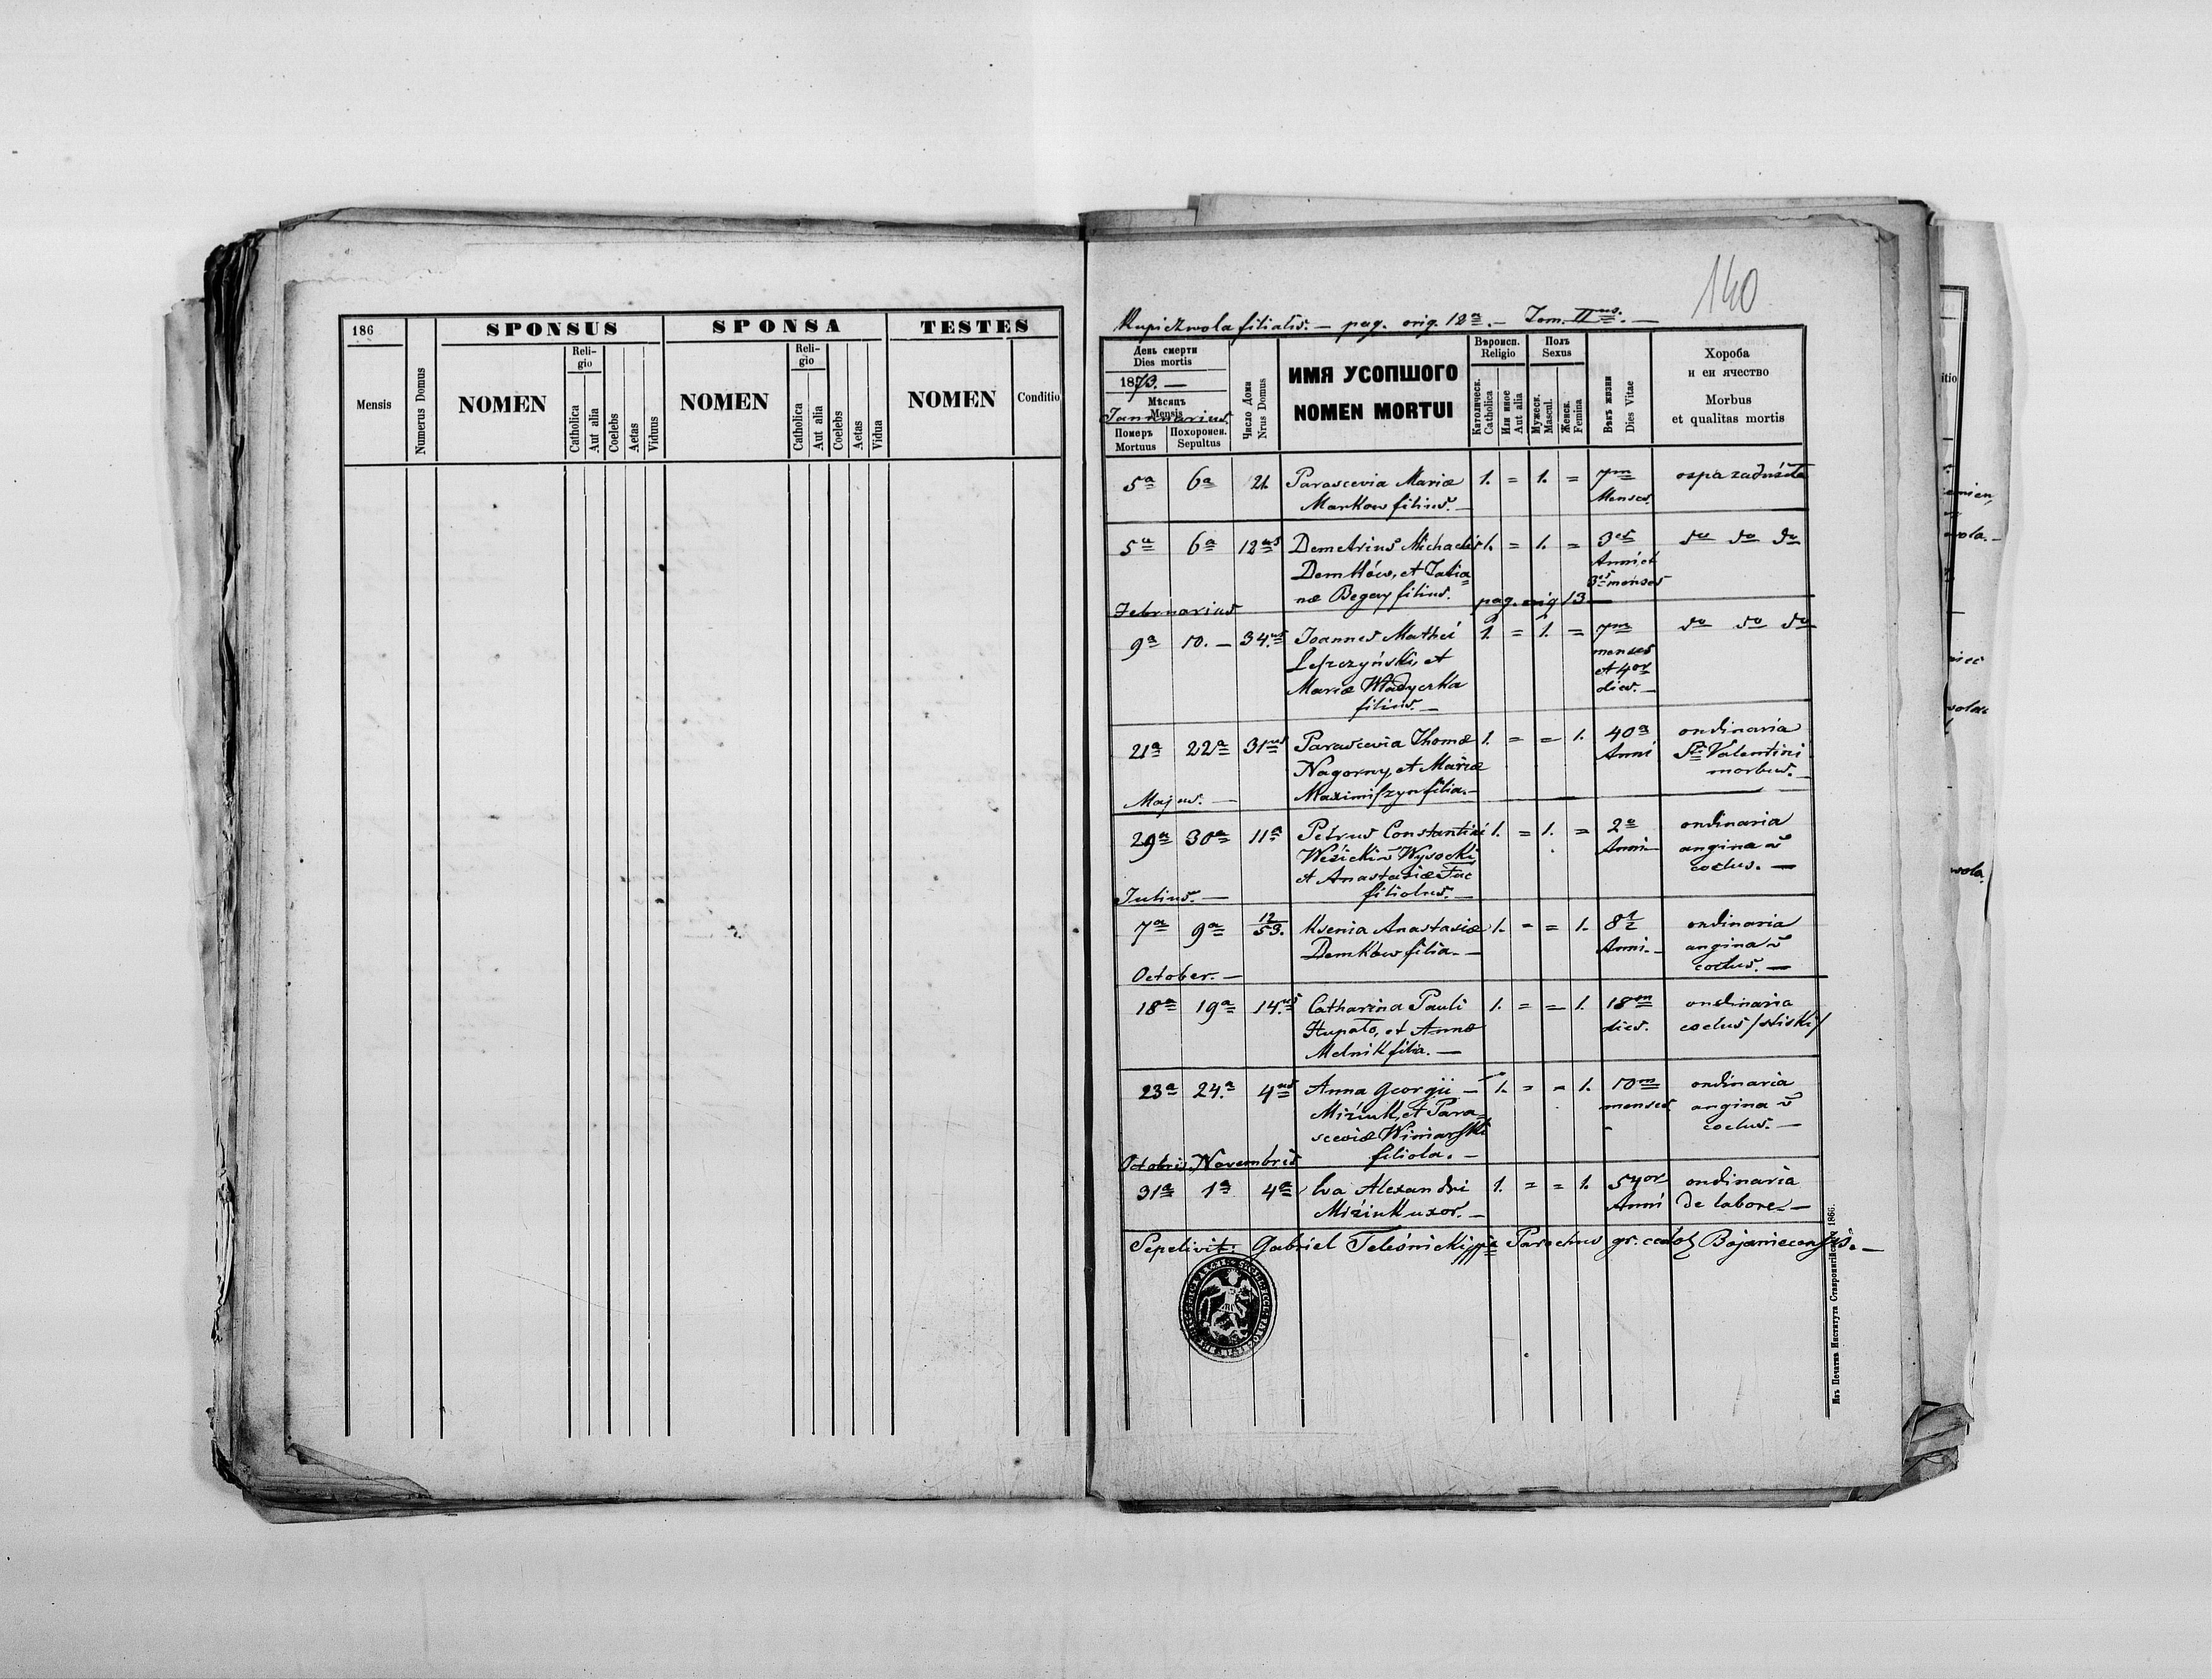 186
SPONSUS
SPONSA
TESTES
Mensis
Numerus Domus
NOMEN
Reli-
gio
Catholica
Aut alia
Coelebs
Aetas
Viduus
NOMEN
Reli-
gio
Catholica
Aut alia
Coelebs
Aetas
Vidua
NOMEN
Conditio
140
Kupiczwola filialis. — pag. orig. 12a. — Tom. IIus. —
День смерти
Dies mortis
1873. —
Мѣсяцъ
Mensis
Januarius.
Померъ
Mortuus
Похоронен.
Sepultus
Число Дома
Nrus Domus
ИМЯ УСОПШОГО
NOMEN MORTUI
Вѣроисп.
Religio
Католическ.
Catholica
Или иное
Aut alia
Полъ
Sexus
Мужеск.
Mascul.
Женск.
Femina
Вѣкъ жизни
Dies Vitae
Хороба
и еи ячество
Morbus
et qualitas mortis
5a 6a 21. Parascevia Mariæ 1. = 1. = 7m ospa
Markow filius. — Menses.
5a 6a 12us Demetrius Michaelis 1. = 1. = 3es do do do
Demków, et Tatia= Anni, et
næ Begay filius. 3es menses
Februarius pag. orig 13 —
9a 10. — 34.us Joannes Mathei 1. = 1. = 7m do do do
Lepczyński, et menses
Mariæ Władyczka et 4or
filius. — dies. —
21a 22a 31us Parascevia Thomæ 1. = = 1. 40a ordinaria
Nagorny, et Mariæ Anni St. Valentini
Majus. — Maximiszyn filia. — morbus. —
29a 30a 11a Petrus Constantini 1. = 1. = 2a ordinaria
Wysocki, Anni — angina
et Anastasiæ Fuc coclus. —
Julius. — filiolus. —
7a 9a 12/53. Ksenia Anastasiæ 1. = = 1. 8½ ordinaria
Demków filia. — Anni. — angina
October. — coclus. —
18a 19a 14.us Catharina Pauli 1. = = 1. 18m ordinaria
Hupało, et Annæ dies. coclus
Melnik filia. —
23a 24.a 4us Anna Georgii — 1. = = 1. 10m ordinaria
Miziuk, et Para= menses angina
sceviæ Winiarski coclus. —
Octobris, Novembris filiola. —
31a 1a 4a Eva Alexandri 1. = = 1. 54or ordinaria
Miziuk uxor. — Anni de labore. —
Sepelivit: Gabriel Teleśnicki Parochus gr.
Изъ Печатнѣ Института Ставропигійского 1866.